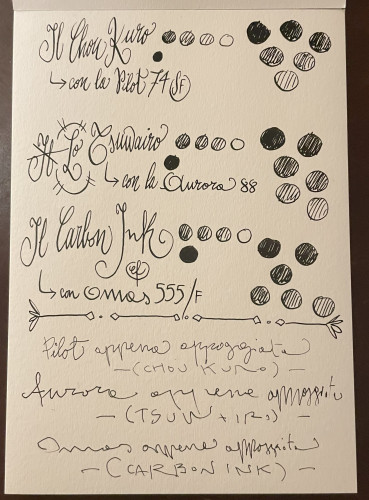 Il Chou Kuro
con la Pilot 74 SF
Il Lo Tsuwairo
con la Aurora 88
Il Carbon Ink
con Omas 555/F
Pilot appena appoggiata
(CHOU KURO)
Aurora appena appoggiata
(TSUWAIRO)
Omas appena appoggiata
(CARBON INK)